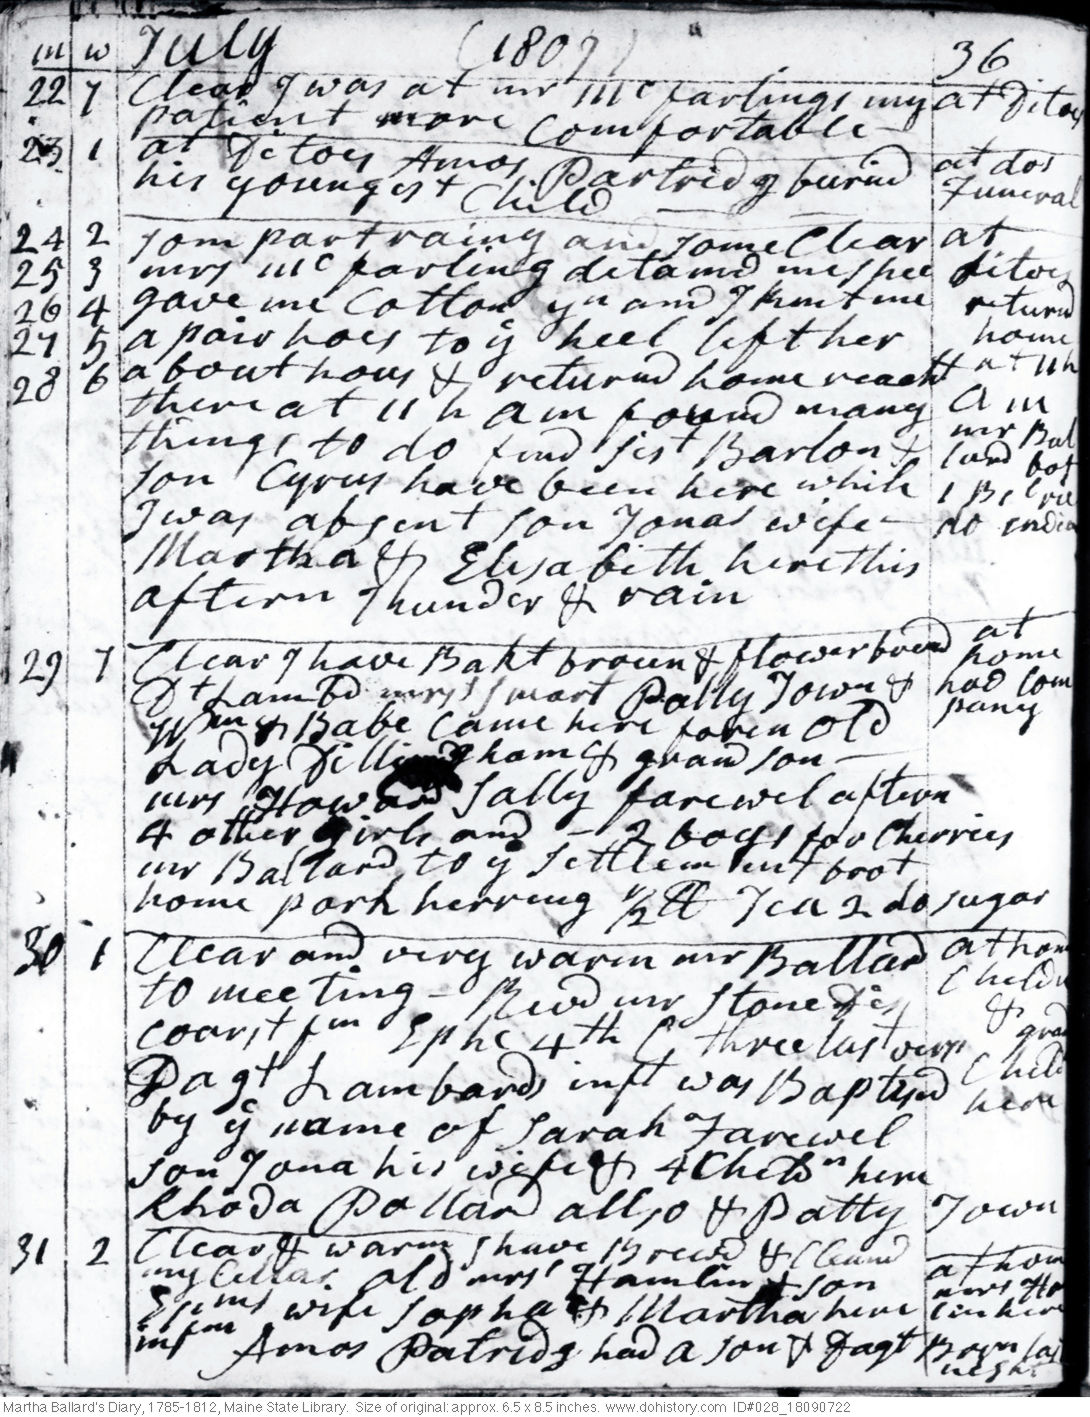 m w July (1809) 36
22 7 Clear I was at mr mcfarlings my at Ditoes
patient more comfortable
23 1 at Ditoes Amos Partridg buried at dos
his youngest Child Funeral
24 2 som part rainy and some Clear at
25 3 mrs mcfarling detaind me shee ditoes
26 4 gave me Cotton yn and I knit me returnd
27 5 a pair hoes to ye heel left her home
28 6 about hous & returnd home reacht at 11 h
there at 11 h am found many Am
things to do find sist Barton & mr Bal
son Cyrus have been here while lard bot
I was absent son Jonas wife 1 Bs
Martha & Elisabeth here this do indian
aftern Thunder & rain
29 7 Clear I have Bakt brown & flower bread at home
Dt Lambd mrs Smart Patty Town & had com
Wm & Babe Came here foren old pany
Lady Dillingham & grand son
mrs Howard Sally farewel aftern
4 other girls and 2 boys for Cherries
mr Ballard to ye settlement brot
home pork herring ½ lb Tea 2 do sugar
30 1 Clear and very warm mr Ballard at hom
to meeting mr Stone Children
coarst fm Ephe 4th C three last vers & grand
Dagt Lambards inft was Baptisd Child
by ye name of Sarah Farewel here
son Jona his wife & 4 Childn here
Rhoda Pollard allso & Patty Town
31 2 Clear & warm I have Brewd & Cleand at hom
my Cellar old mrs Hamlin & son mrs Ham
Epms wife Sopha & Martha here lin here
inft Amos Patridg had a son & Dagt Born last
night
Martha Ballard's Diary, 1785-1812, Maine State Library. Size of original: approx. 6.5 x 8.5 inches. www.dohistory.com ID#028_18090722